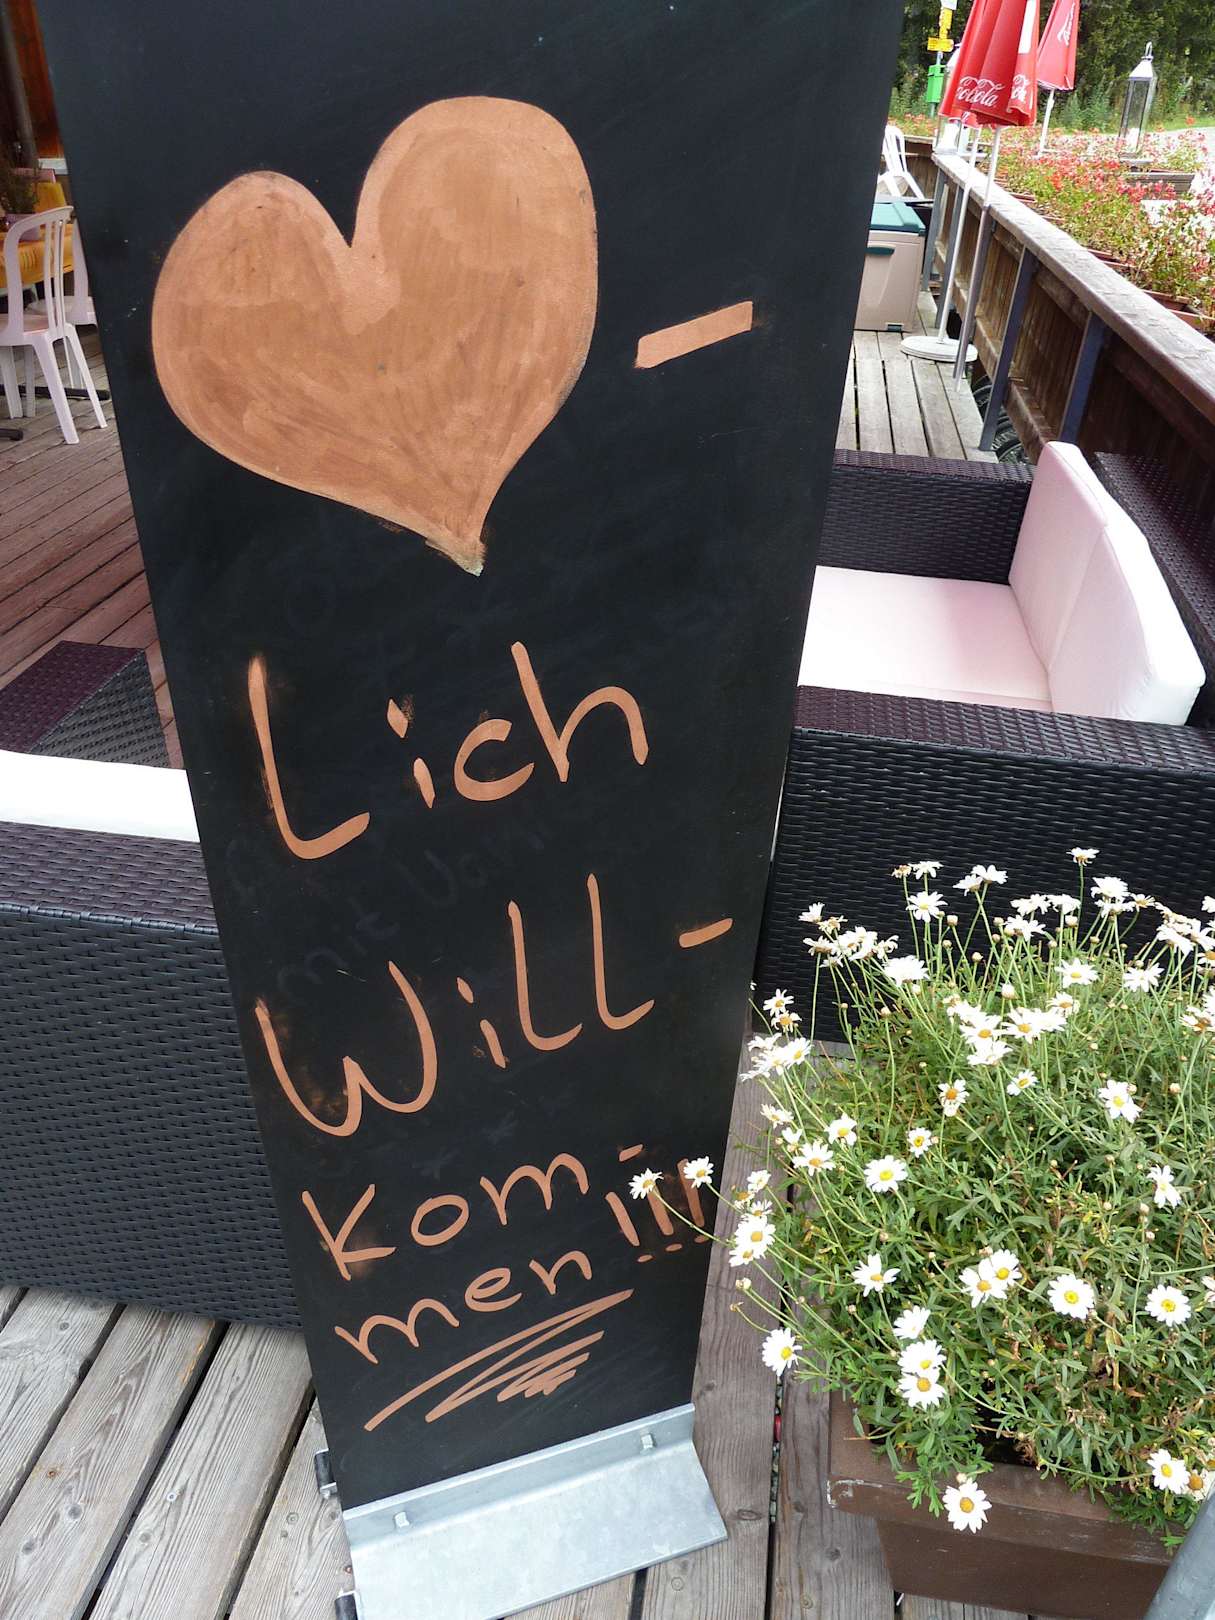 ❤ -
Lich
Will-
kom-
men!!!
Coca-Cola